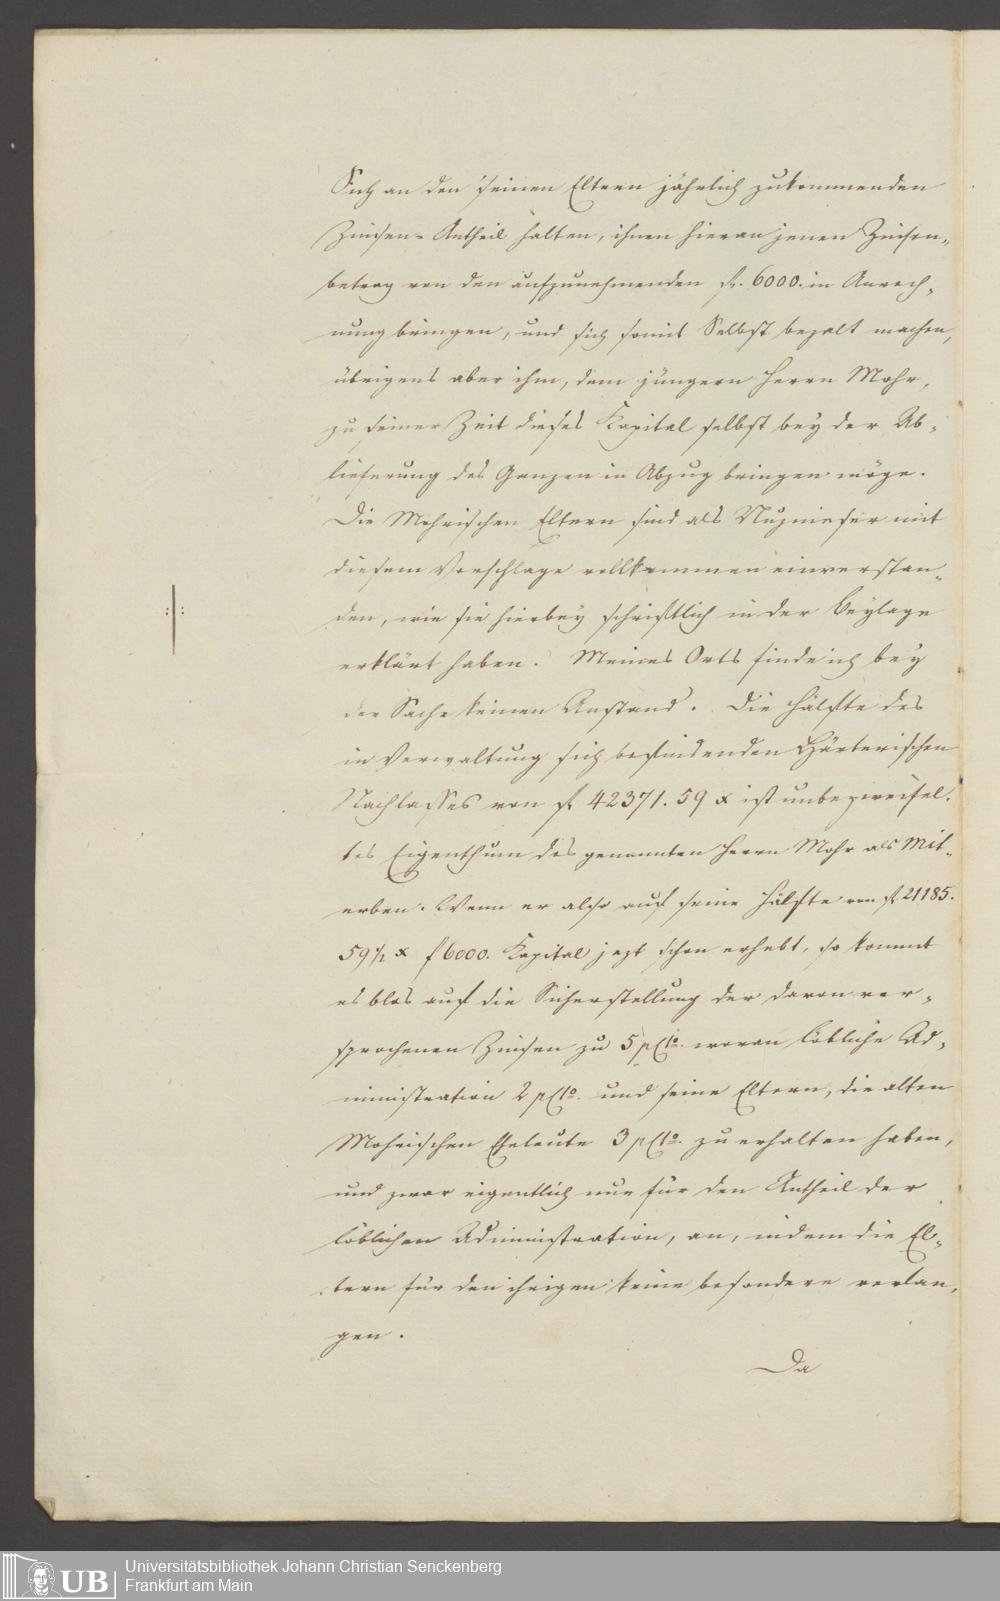 Sich an den seinen Eltern jährlich zukommenden
Zinsen-Antheil halten, ihnen hieran jenen Zinsen-
betrag von den aufzunehmenden fl. 6000. in Anrech-
nung bringen, und sich somit Selbst bezalt machen,
übrigens aber ihm, dem jüngern Herrn Mohr,
zu seiner Zeit dieses Kapital selbst bey der Ab-
lieferung des Ganzen in Abzug bringen möge.
Die Mohrischen Eltern sind als Nuznieser mit
diesem Vorschlage vollkommen einverstan-
den, wie sie hierbey schriftlich in der Beylage
erklärt haben. Meines Orts finde ich bey
der Sache keinen Anstand. Die Hälfte des
in Verwaltung sich befindenden Härterischen
Nachlasses von fl 42371. 59 x ist unbezweifel-
tes Eigenthum des genannten Herrn Mohr als Mit-
erben. Wenn er also auf seine Hälfte von fl 21185.
59½ x f 6000. Kapital jezt schon erhebt, so kommt
es blos auf die Sicherstellung der davon ver-
sprochenen Zinsen zu 5 pCto. wovon löbliche Ad-
ministration 2 pCto. und seine Eltern, die alten
Mohrischen Eheleute 3 pCto. zu erhalten haben,
und zwar eigentlich nur für den Antheil der
löblichen Administration, an, indem die El-
tern für den ihrigen keine besondere verlan-
gen.
Da
Universitätsbibliothek Johann Christian Senckenberg
Frankfurt am Main
UB